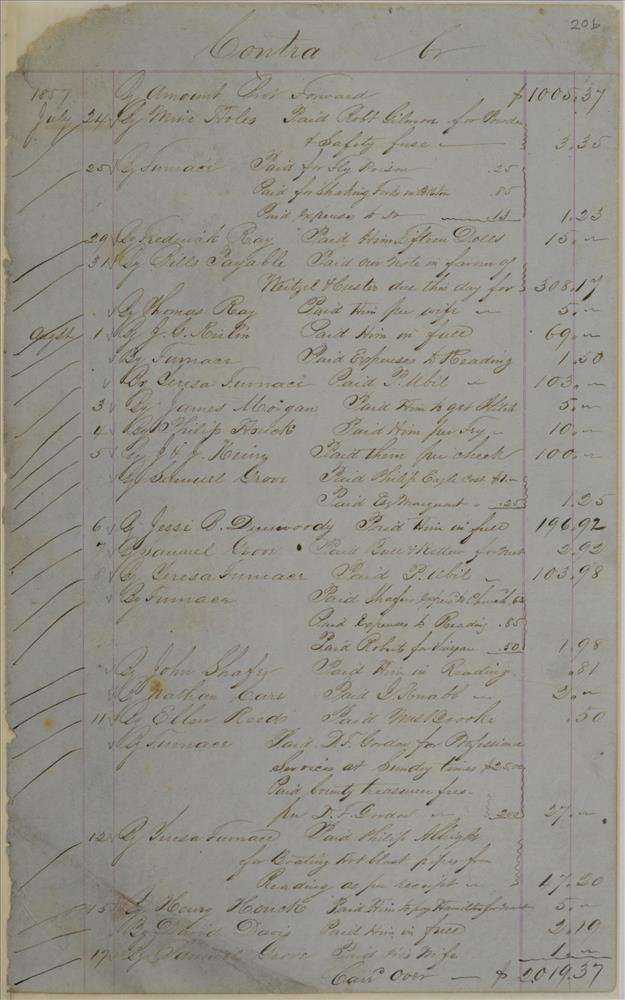 206
Contra Cr
1857 By Amount Brot Forward $1005.37
July 24 By Mine Holes Paid Robt Gilmore for Powder
& Safety fuse 3.35
25 By Furnace Paid for Fly Poison .25
Paid for Shaking Forks in .85
Paid expenses to do .13 1.23
29 By Frederick Ray Paid Him Fifteen Dolls 15.
31 By Bills Payable Paid our Note in favour of
Hester due this day for 308.17
By Thomas Ray Paid Him per wife 5.
Augst 1 By J. C. Paid Him in full 69.
By Furnace Paid Expenses to Reading 1.50
By Teresa Furnace Paid P. Ubil 103.
3 By James Morgan Paid Him to get 5.
4 By Philip Houck Paid Him per 10.
5 By J & J. Paid them per check 100.
By Samuel Groov Paid Philip Eagle Cost $1.
Paid Esq Marquart .25 1.25
6 By Jessi D. Dunwoody Paid Him in full 196.92
7 By Samuel Groov Paid for 2.92
8 By Teresa Furnace Paid P. Ubil 103.98
By Furnace Paid Shafer to Church .63
Paid Expenses to Reading .85
Paid Roberts for Vinegar .50 1.98
By John Shafer Paid Him in Reading .81
By Nathan Care Paid Knabb 2.
11 By Ellen Reed Paid Brooke .50
By Furnace Paid D. F. Gordon for Professional
Services at Sundry times $25.00
Paid County treasurer fees
per D. F. Gordon 2.00 27.
12 By Teresa Furnace Paid Philip Albright
for Boating Hot Blast pipes from
Reading as per receipt 17.20
15 By Henry Houck Paid Him to pay Hamilton for 5.
By David Davis Paid Him in full 2.19
17 By Samuel Grove Paid His Wife 1.
Card Over $2019.37